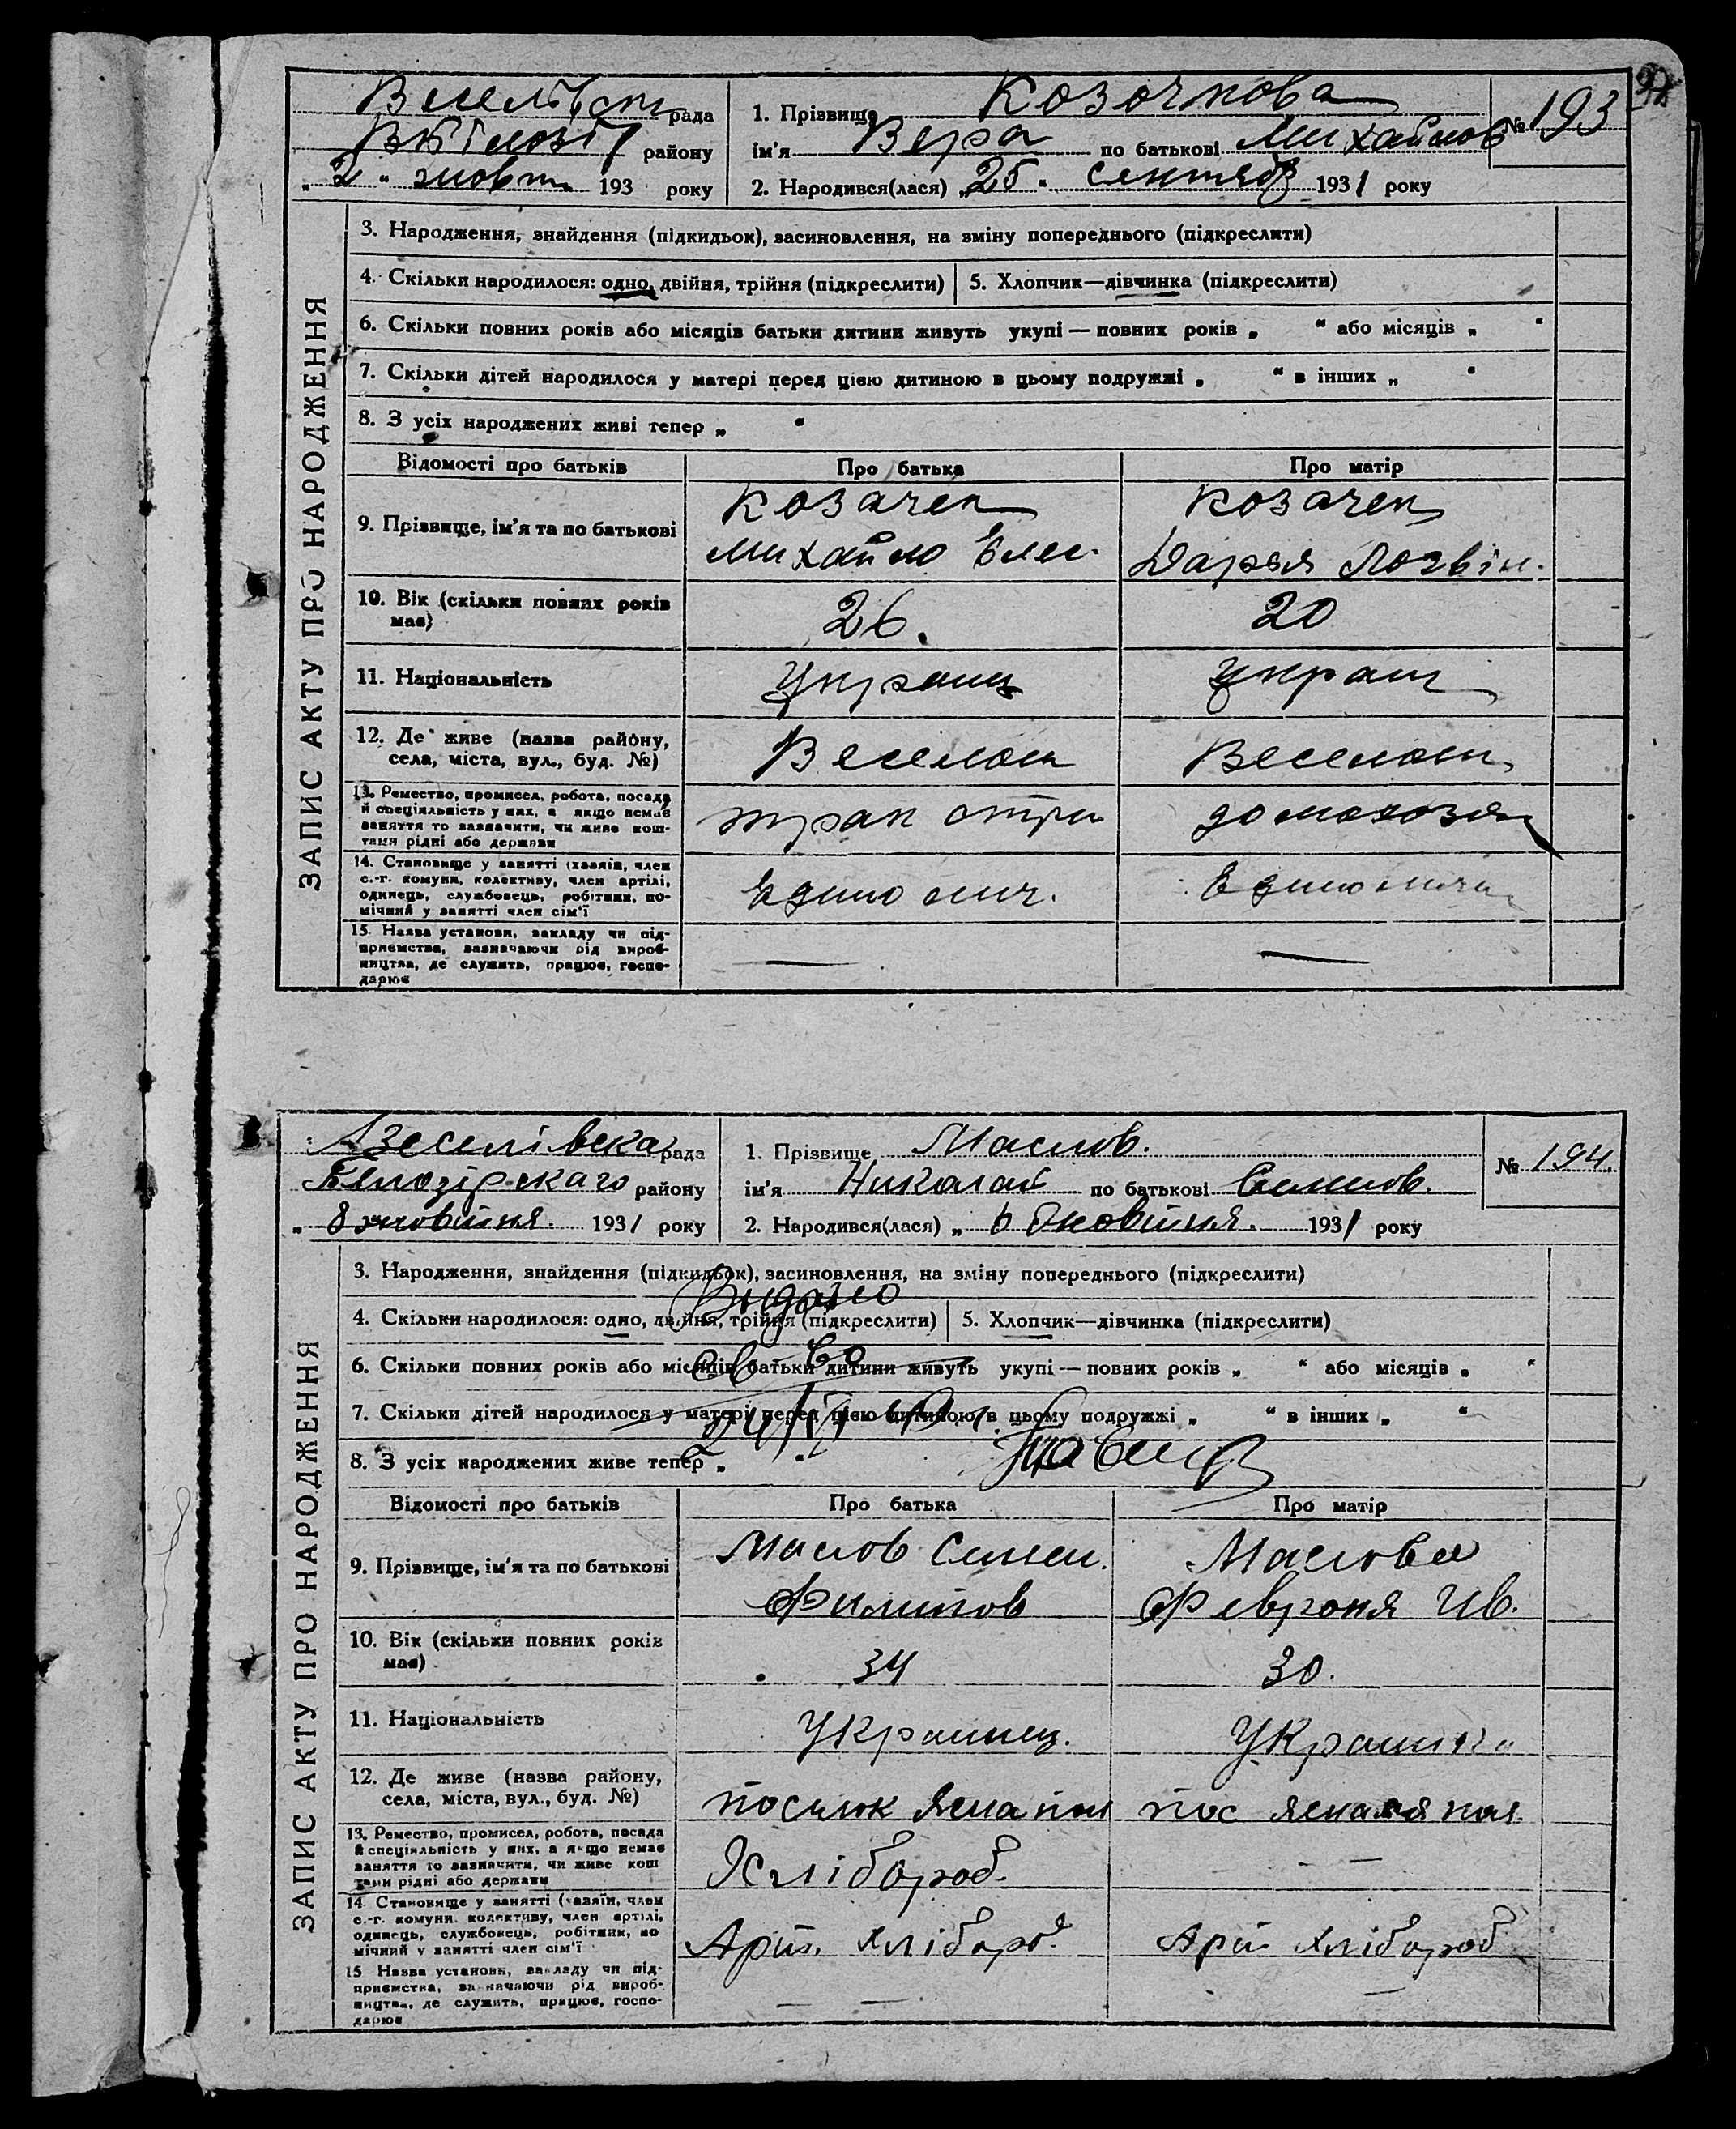 Веселівськ рада
району
„2“ жовт. 193 року
1. Прізвище Козочкова
ім'я Вера по батькові Михайлов
№ 193
2. Народився(лася) „25“ сентяб 1931 року
ЗАПИС АКТУ ПРО НАРОДЖЕННЯ
3. Народження, знайдення (підкидьок), засиновлення, на зміну попереднього (підкреслити)
4. Скільки народилося: одно, двійня, трійня (підкреслити)
5. Хлопчик—дівчинка (підкреслити)
6. Скільки повних років або місяців батьки дитини живуть укупі — повних років „ “ або місяців „ “
7. Скільки дітей народилося у матері перед цією дитиною в цьому подружжі „ “ в інших „ “
8. З усіх народжених живі тепер „ “
Відомості про батьків
Про батька
Про матір
9. Прізвище, ім'я та по батькові
Козачек
Михайло Елис.
Козачек
Дарья Логвін.
10. Вік (скільки повних років
має)
26.
20
11. Національність
Украинц
Украин
12. Де живе (назва району,
села, міста, вул., буд. №)
Веселом
Веселом
13. Ремество, промисел, робота, посада
й спеціяльність у них, а якщо немає
заняття то зазначити, чи живе кош-
тами рідні або держави
домохозяй
14. Становище у занятті (хазяїн, член
с.-г. комуни, колективу, член артілі,
одинець, службовець, робітник, по-
мічний у занятті член сім'ї
Единолич.
Единолични
15. Назва установи, закладу чи під-
приємства, зазначаючи рід вироб-
ництва, де служить, працює, госпо-
дарює
Веселівска рада
Белозірскаго району
„8 жовтня 1931 року
1. Прізвище Маслов.
ім'я Николай по батькові Семенов.
№ 194.
2. Народився(лася) „6 жовтня. 1931 року
ЗАПИС АКТУ ПРО НАРОДЖЕННЯ
3. Народження, знайдення (підкидьок), засиновлення, на зміну попереднього (підкреслити)
Видано
4. Скільки народилося: одно, двійня, трійня (підкреслити)
5. Хлопчик—дівчинка (підкреслити)
св-во
6. Скільки повних років або місяців батьки дитини живуть укупі — повних років „ “ або місяців „ “
7. Скільки дітей народилося у матері перед цією дитиною в цьому подружжі „ “ в інших „ “
8. З усіх народжених живе тепер „ “
Відомості про батьків
Про батька
Про матір
9. Прізвище, ім'я та по батькові
Маслов Симен.
Филипов
Маслова
Февроня Ив.
10. Вік (скільки повних років
має)
34
30.
11. Національність
Украинец.
Украинк
12. Де живе (назва району,
села, міста, вул., буд. №)
посилок Ясна пол
пос Ясная пол
13. Ремество, промисел, робота, посада
й спеціяльність у них, а якщо немає
заняття то зазначити, чи живе кош
тами рідні або держави
Хлібороб.
14. Становище у занятті (хазяїн, член
с.-г. комуни, колективу, член артілі,
одинець, службовець, робітник, по
мічний у занятті член сім'ї
Арт. хлібороб.
Арт хлібороб
15 Назва установи, закладу чи під-
приємства, зазначаючи рід вироб-
ництва, де служить, працює, госпо-
дарює